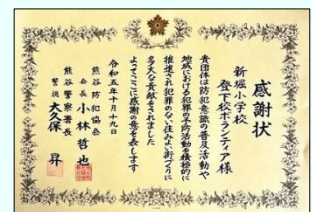 感謝状
新堀小学校
登下校ボランティア様
貴団体は防犯意識の普及活動や
地域における犯罪の予防活動を積極的に
推進され犯罪のない住みよい街づくりに
多大な貢献をされました
よってここに感謝の意を表します
令和五年十月十九日
熊谷防犯協会
会長 小林哲也
熊谷警察署長
警視 大久保昇